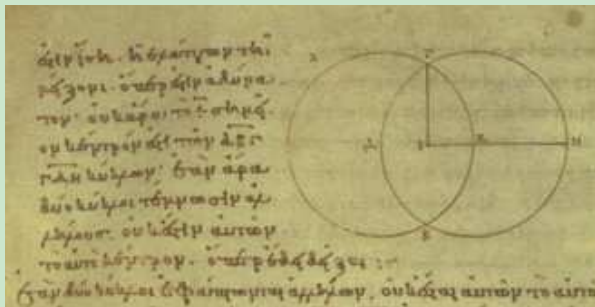 ἐστὶν ἴση. ἡ ἐλάττων τῆι
μείζονι. ὅπερ ἐστὶν ἀδύνα
τον· οὐκ ἄρα τὸ Ε σημεῖ
ον κέντρον ἐστὶ τῶν ΑΒΓ
ΓΔΗ κύκλων· ἐὰν ἄρα
δύο κύκλοι τέμνωσιν ἀλ
λήλους. οὐκ ἔστιν αὐτῶν
τὸ αὐτὸ κέντρον. ὅπερ ἔδει δεῖξαι :
ἐὰν δύο κύκλοι ἐφάπτωνται ἀλλήλων, οὐκ ἔσται αὐτῶν τὸ αὐτὸ
Α
Γ
Δ
Ε
Ζ
Η
Β